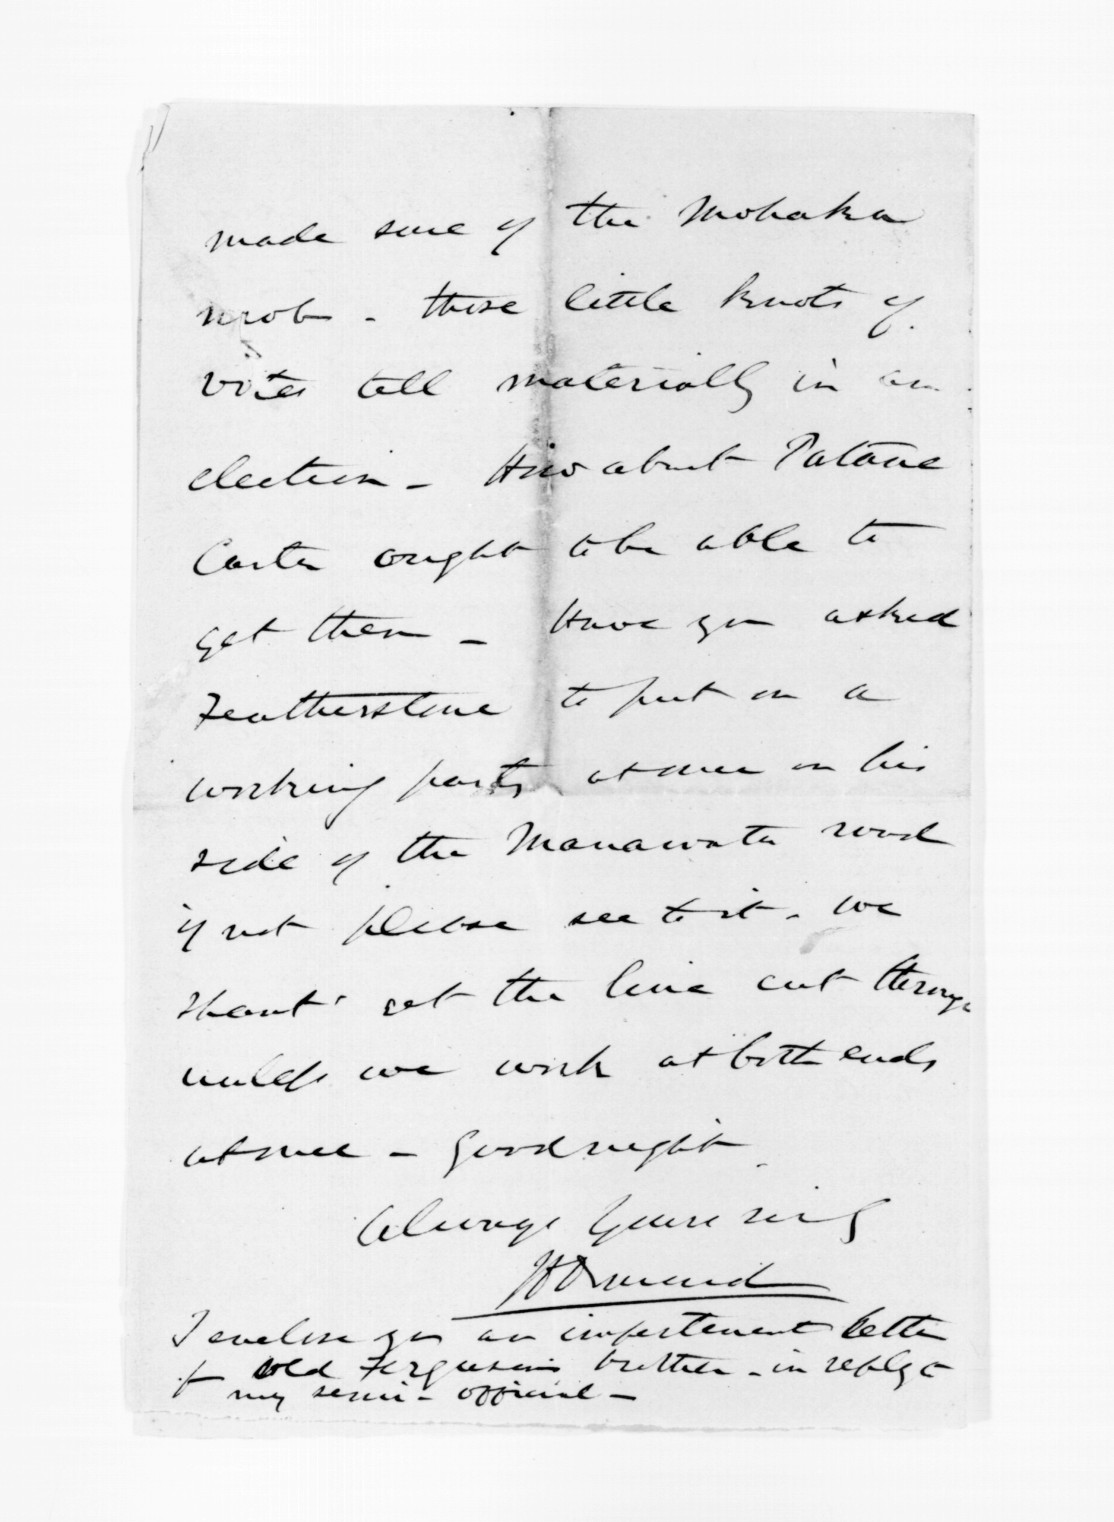 made sure of the Mohaka
mob - those little knots of
votes tell materially in an
election - How about Petane
Carter ought to be able to
get them - Have you asked
Featherstone to put on a
working party at once on his
side of the Manawatu road
if not please see to it. we
shant' get the line cut through
unless we work at both ends
at once - Good night
Always Yours sincly
JD Ormond
I enclose you an impertinent letter
fm old Fergusons brother - in reply to
my semi-official -